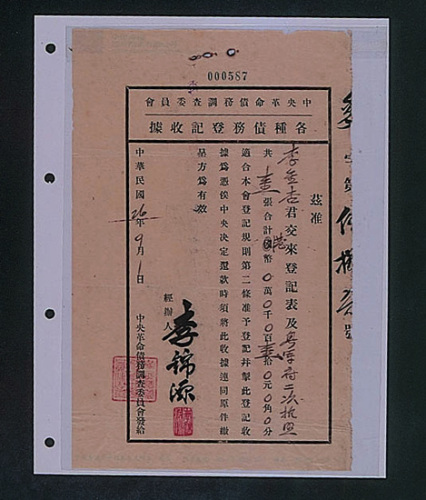 000587
中央革命債務調查委員會
各種債務登記收據
茲准
李 君交來登記表及 府二次抵照
共壹張合計港幣0萬0千0百壹拾0元0角0分
適合本會登記規則第二條准予登記幷掣此登記收
據爲憑俟中央決定還款時須將此收據連同原件繳
呈方爲有效
經辦人 李錦源
中華民國26年9月1日
中央革命債務調查委員會發給